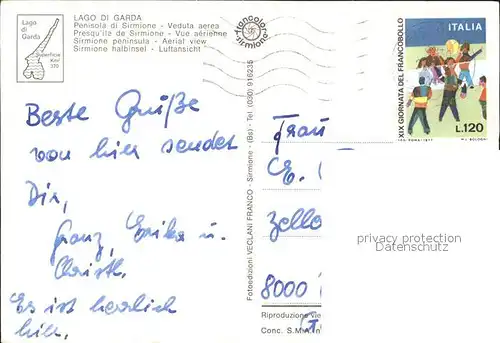 LAGO DI GARDA
Penisola di Sirmione - Veduta aerea
Presqu'île de Sirmione - Vue aérienne
Sirmione peninsula - Aerial view
Sirmione halbinsel - Luftansicht
Lago
di
Garda
Superficie
Kmq
370
francolor
Sirmione
XIX GIORNATA DEL FRANCOBOLLO
ITALIA
L.120
Beste Grüße
von hier sendet
Dir,
Franz, Erika u.
Christl.
Es ist herrlich
hier.
Fotoedizioni VECLANI FRANCO - Sirmione - (Bs) - Tel. (030) 916235
Frau
E.
Zello
8000
privacy protection
Datenschutz
Riproduzione vie
Conc. S.M.A.